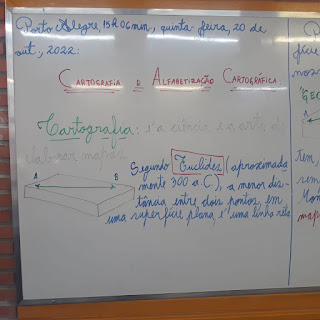 Porto Alegre, 15h 06min, quinta-feira, 20 de
out, 2022:
CARTOGRAFIA e ALFABETIZAÇÃO CARTOGRÁFICA
Cartografia: é a ciência e a arte de
elaborar mapas.
Segundo Euclides (aproximada
mente 300 a.C), a menor dis-
tância entre dois pontos, em
uma superfície plana, é uma linha reta
A B
P
fície
nos
"GEO
tem,
sem
mapa